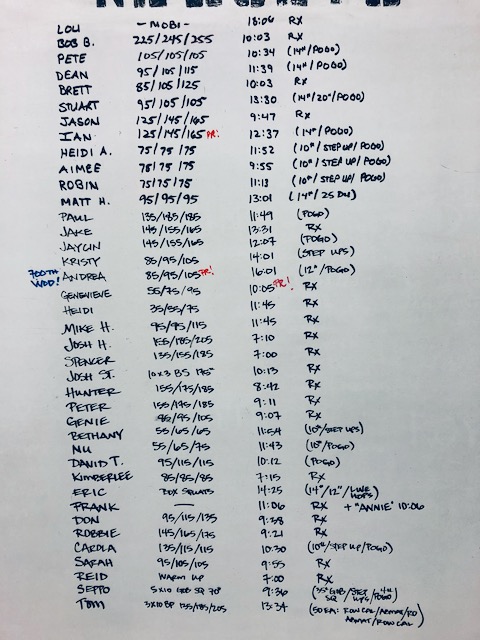 LOU - MOBI - 18:06 RX
BOB B. 225/245/255 10:03 RX
PETE 105/105/105 10:34 (14"/POGO)
DEAN 95/105/115 11:39 (14"/POGO)
BRETT 85/105/125 10:03 RX
STUART 95/105/105 13:30 (14"/20"/POGO)
JASON 125/145/165 9:47 RX
IAN 125/145/165 PR! 12:37 (14"/POGO)
HEIDI A. 75/75/75 11:52 (10"/STEP UP/POGO)
AIMEE 75/75/75 9:55 (10"/STEP UP/POGO)
ROBIN 75/75/75 11:13 (10"/STEP UP/POGO)
MATT H. 95/95/95 13:01 (14"/25 DU)
PAUL 135/185/185 11:49 (POGO)
JAKE 145/155/165 13:31 RX
JAYLIN 145/155/165 12:07 (POGO)
KRISTY 85/95/105 14:01 (STEP UPS)
700TH WOD! ANDREA 85/95/105 PR! 16:01 (12"/POGO)
GENEVIEVE 55/75/95 10:05 PR! RX
HEIDI 35/55/75 11:45 RX
MIKE H. 95/95/115 11:45 RX
JOSH H. 155/185/205 7:10 RX
SPENCER 135/155/185 7:00 RX
JOSH ST. 10x3 BS 175# 10:13 RX
HUNTER 155/175/185 8:42 RX
PETER 155/175/185 9:11 RX
GENIE 95/95/105 9:07 RX
BETHANY 55/65/65 11:54 (10"/STEP UPS)
MU 55/65/75 11:43 (10"/POGO)
DAVID T. 95/115/115 10:12 (POGO)
KIMBERLEE 85/85/85 7:15 RX
ERIC BOX SQUATS 14:25 (14"/12"/LINE HOPS)
FRANK — 11:06 RX + "ANNIE" 10:06
DON 95/115/135 9:38 RX
ROBBIE 145/165/175 9:21 RX
CAROLA 135/115/115 10:30 (10"/STEP UP/POGO)
SARAH 95/105/105 9:55 RX
REID WARM UP 7:00 RX
SEPPO 5x10 GOB SQ 70# 9:36 (35# GOB SQ/STEP UPS/4" POGO)
TOM 3x10 BP 135/185/205 13:34 (50 EA: ROW CAL/